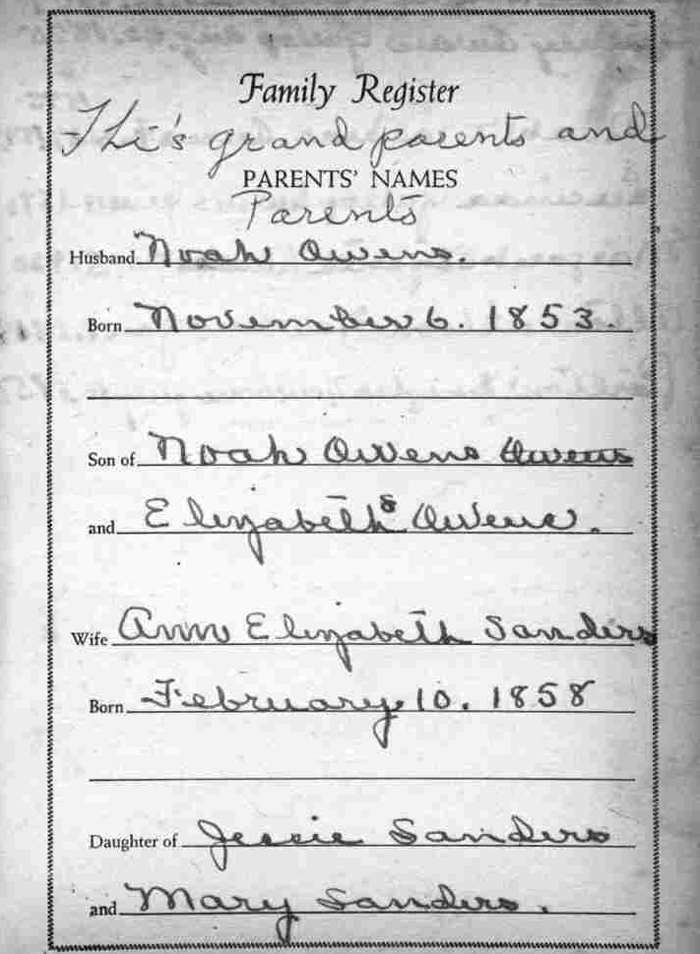 Family Register
Thi's grand parents and
PARENTS' NAMES
Parents
Husband Noah Owens.
Born November 6. 1853.
Son of Noah Owens Owens
and Elizabeth Owens.
Wife Ann Elizabeth Sanders
Born February 10. 1858
Daughter of Jessie Sanders
and Mary Sanders.